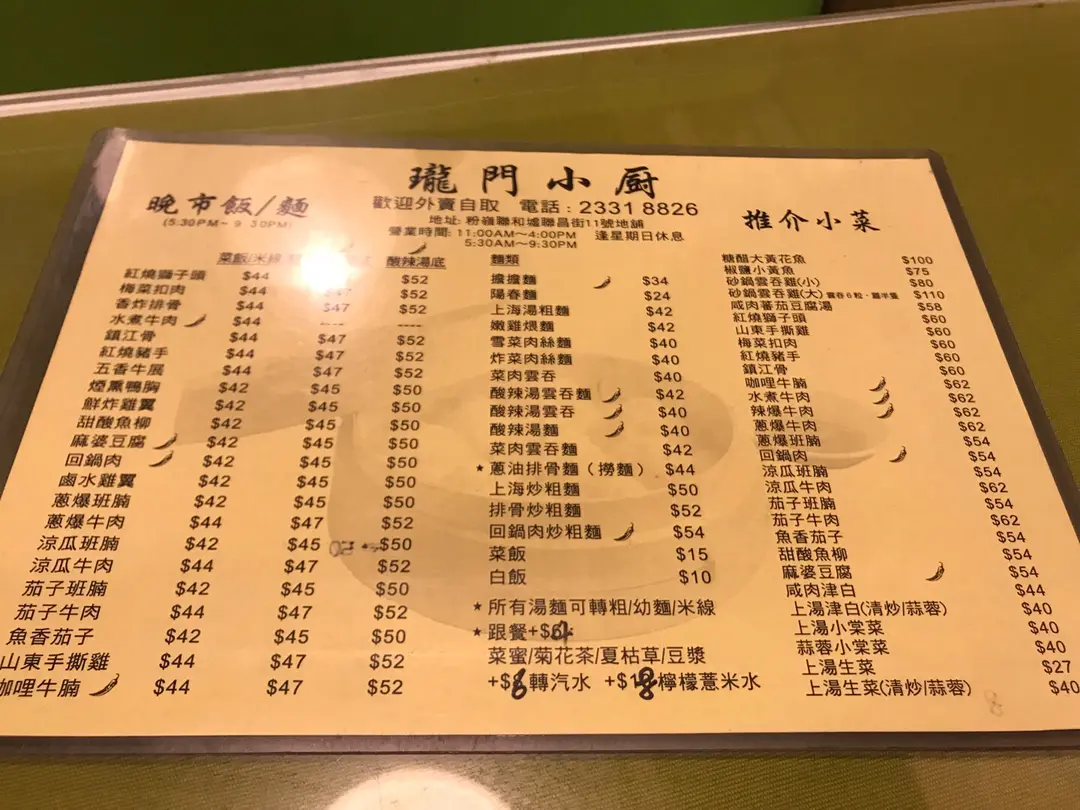 瓏門小厨
歡迎外賣自取 電話：2331 8826
地址: 粉嶺聯和墟聯昌街11號地舖
營業時間: 11:00AM～4:00PM 逢星期日休息
5:30AM～9:30PM
晚市飯/麵
(5:30PM~9:30PM)
菜飯/米線 酸辣湯底
紅燒獅子頭 $44 $52
梅菜扣肉 $44 $52
香炸排骨 $44 $47 $52
水煮牛肉 $44 ----
鎮江骨 $44 $47 $52
紅燒豬手 $44 $47 $52
五香牛展 $44 $47 $52
煙熏鴨胸 $42 $45 $50
鮮炸雞翼 $42 $45 $50
甜酸魚柳 $42 $45 $50
麻婆豆腐 $42 $45 $50
回鍋肉 $42 $45 $50
鹵水雞翼 $42 $45 $50
蔥爆班腩 $42 $45 $50
蔥爆牛肉 $44 $47 $52
涼瓜班腩 $42 $45 $50
涼瓜牛肉 $44 $47 $52
茄子班腩 $42 $45 $50
茄子牛肉 $44 $47 $52
魚香茄子 $42 $45 $50
山東手撕雞 $44 $47 $52
咖哩牛腩 $44 $47 $52
麵類
擔擔麵 $34
陽春麵 $24
上海湯粗麵 $42
嫩雞煨麵 $42
雪菜肉絲麵 $40
炸菜肉絲麵 $40
菜肉雲吞 $40
酸辣湯雲吞麵 $42
酸辣湯雲吞 $40
酸辣湯麵 $40
菜肉雲吞麵 $42
★蔥油排骨麵（撈麵） $44
上海炒粗麵 $50
排骨炒粗麵 $52
回鍋肉炒粗麵 $54
菜飯 $15
白飯 $10
★所有湯麵可轉粗/幼麵/米線
★跟餐+$
菜蜜/菊花茶/夏枯草/豆漿
+$8轉汽水 +$18檸檬薏米水
推介小菜
糖醋大黃花魚 $100
椒鹽小黃魚 $75
砂鍋雲吞雞(小) $80
砂鍋雲吞雞(大) 雲吞6粒，雞半隻 $110
咸肉蕃茄豆腐湯 $58
紅燒獅子頭 $60
山東手撕雞 $60
梅菜扣肉 $60
紅燒豬手 $60
鎮江骨 $60
咖哩牛腩 $62
水煮牛肉 $62
辣爆牛肉 $62
蔥爆牛肉 $62
蔥爆班腩 $54
回鍋肉 $54
涼瓜班腩 $54
涼瓜牛肉 $62
茄子班腩 $54
茄子牛肉 $62
魚香茄子 $54
甜酸魚柳 $54
麻婆豆腐 $54
咸肉津白 $44
上湯津白(清炒/蒜蓉) $40
上湯小棠菜 $40
蒜蓉小棠菜 $40
上湯生菜 $27
上湯生菜(清炒/蒜蓉) $40